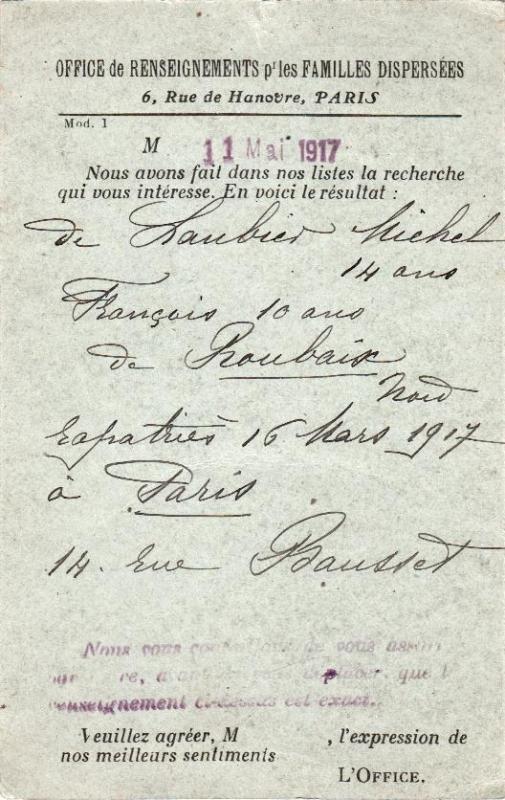 OFFICE de RENSEIGNEMENTS pr les FAMILLES DISPERSÉES
6, Rue de Hanovre, PARIS
Mod. 1
M 11 Mai 1917
Nous avons fait dans nos listes la recherche
qui vous intéresse. En voici le résultat :
de Laubier Michel
14 ans
François 10 ans
de Roubaix
Nord
rapatriés 16 Mars 1917
à Paris
14. rue Bausset
Nous vous conseillons de vous
avant de vous déplacer, que
renseignement ci-dessus est exact.
Veuillez agréer, M , l'expression de
nos meilleurs sentiments
L'OFFICE.